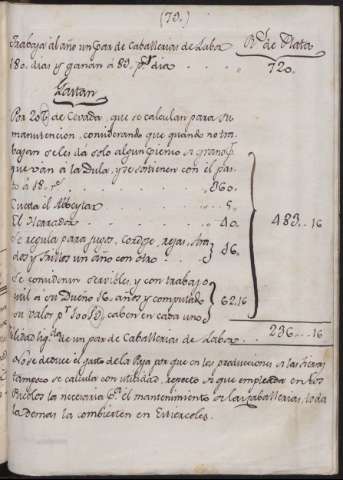 (79.)
Trabaja al año un par de Caballerias de Laba R.s de Plata
180. dias y ganan á 89. p.r dia . . . . 720.
Gastan
Por 20 de Cevada, que se calculan para su
manutencion, considerando que quando no tra-
bajan se les dá solo algun pienso
que van á la Dula, y se sostienen con el pas-
to á 18. r.s . . . . 360.
Cuesta el Albeytar . . . . 5.
El Herrador . . . . 40. 483..16
Se regula para jugos, rejas,
dos y un año con otro . . . 16.
Se consideran servibles, y con trabajo
util á su Dueño 16. años y computado
su valor p.r caben en cada uno 62.16
Utilidad liq.da de un par de Caballerias de Labor . . 236...16
No se deduce el gasto de la Paja por que en las producciones de las tierras
tampoco se calcula con utilidad, respecto á que empleada en los
Pueblos la necesaria p.a el mantenimiento de las Caballerias, toda
la demas la combierten en Estiercoles.